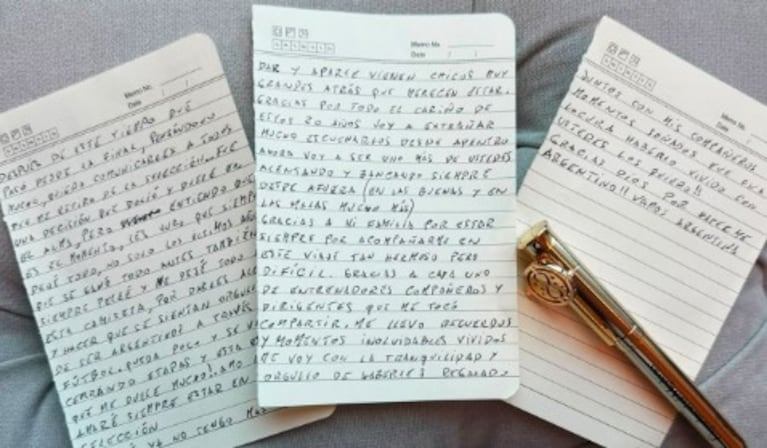 Memo No.
Date
DESPUES DE ESTE TIEMPO QUE
PASÓ DESDE LA FINAL, PENSÁNDOLO
MUCHO, QUIERO COMUNICARLES A TODOS
QUE ME RETIRO DE LA SELECCIÓN. FUE
UNA DECISIÓN QUE DOLIÓ Y DUELE EN
EL ALMA, PERO ENTIENDO QUE
ES EL MOMENTO. LES JURO QUE SIEMPRE
DEJÉ TODO, NO SOLO LOS ULTIMOS
QUE SE GANÓ TODO ANTES TAMBIÉN
SIEMPRE PELEÉ Y ME DEJÉ TODO
ESTA CAMISETA, POR DARLES
Y HACER QUE SE SIENTAN
DE SER ARGENTINOS A TRAVÉS
FÚTBOL. QUEDA POCO Y SE
CERRANDO ETAPAS Y ESTA
QUE ME DUELE MUCHO. AMO
AMARÉ SIEMPRE ESTAR EN
SELECCIÓN
YA NO TENGO
Memo No.
Date
DAR Y APARTE VIENEN CHICOS MUY
GRANDES ATRÁS QUE MERECEN ESTAR.
GRACIAS POR TODO EL CARIÑO DE
ESTOS 20 AÑOS VOY A EXTRAÑAR
MUCHO ESCUCHARLOS DESDE ADENTRO
AHORA VOY A SER UNO MÁS DE USTEDES
ALENTANDO Y BANCANDO SIEMPRE
DESDE AFUERA (EN LAS BUENAS Y EN
LAS MALAS MUCHO MÁS)
GRACIAS A MI FAMILIA POR ESTAR
SIEMPRE POR ACOMPAÑARME EN
ESTE VIAJE TAN HERMOSO PERO
DIFÍCIL. GRACIAS A CADA UNO
DE ENTRENADORES COMPAÑEROS Y
DIRIGENTES QUE ME TOCÓ
COMPARTIR, ME LLEVO RECUERDOS
Y MOMENTOS INOLVIDABLES VIVIDOS
ME VOY CON LA TRANQUILIDAD Y
ORGULLO DE HABERLES REGALADO
Memo No.
Date
JUNTOS CON MIS COMPAÑEROS
MOMENTOS SOÑADOS QUE
LOCURA HABERLO VIVIDO CON
USTEDES LOS QUIERO!!
GRACIAS DIOS POR HACERME
ARGENTINO!! VAMOS ARGENTINA